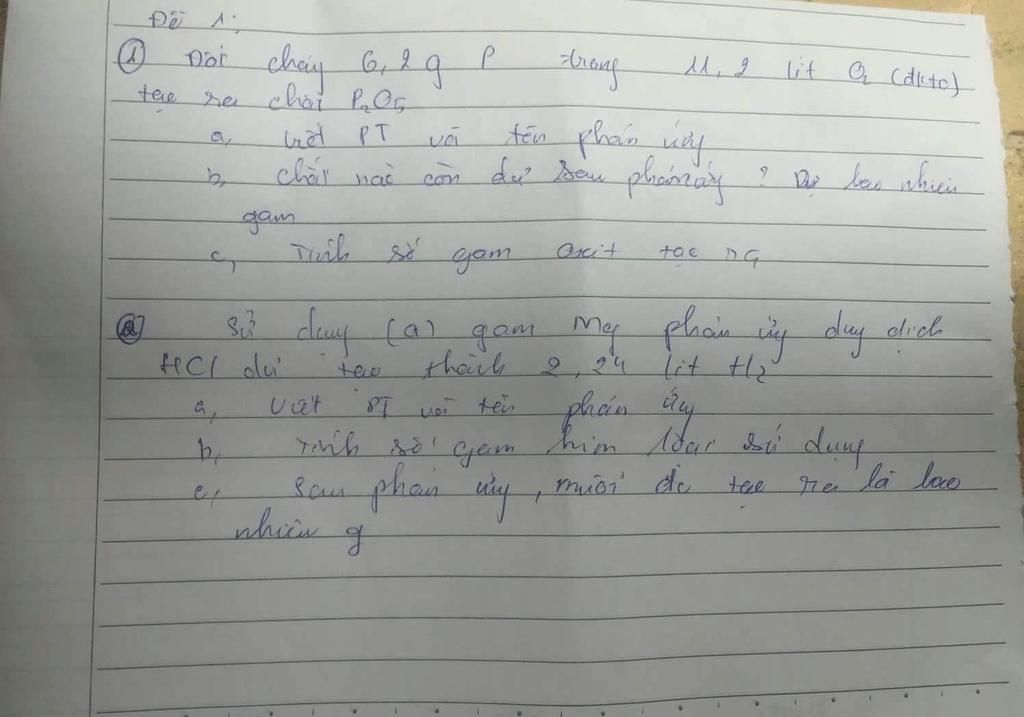 Đề 1:
① Đốt cháy 6,2g P trong 11,2 lít O₂ (đktc)
tạo ra chất P₂O₅
a, Viết PT và tên phản ứng
b, chất nào còn dư sau phản ứng ? Dư bao nhiêu
gam
c, Tính số gam oxit tạo ra
② Sử dụng (a) gam Mg phản ứng dung dịch
HCl dư tạo thành 2,24 lít H₂
a, Viết PT và tên phản ứng
b, Tính số gam kim loại sử dụng
c, Sau phản ứng, muối đc tạo ra là bao
nhiêu g